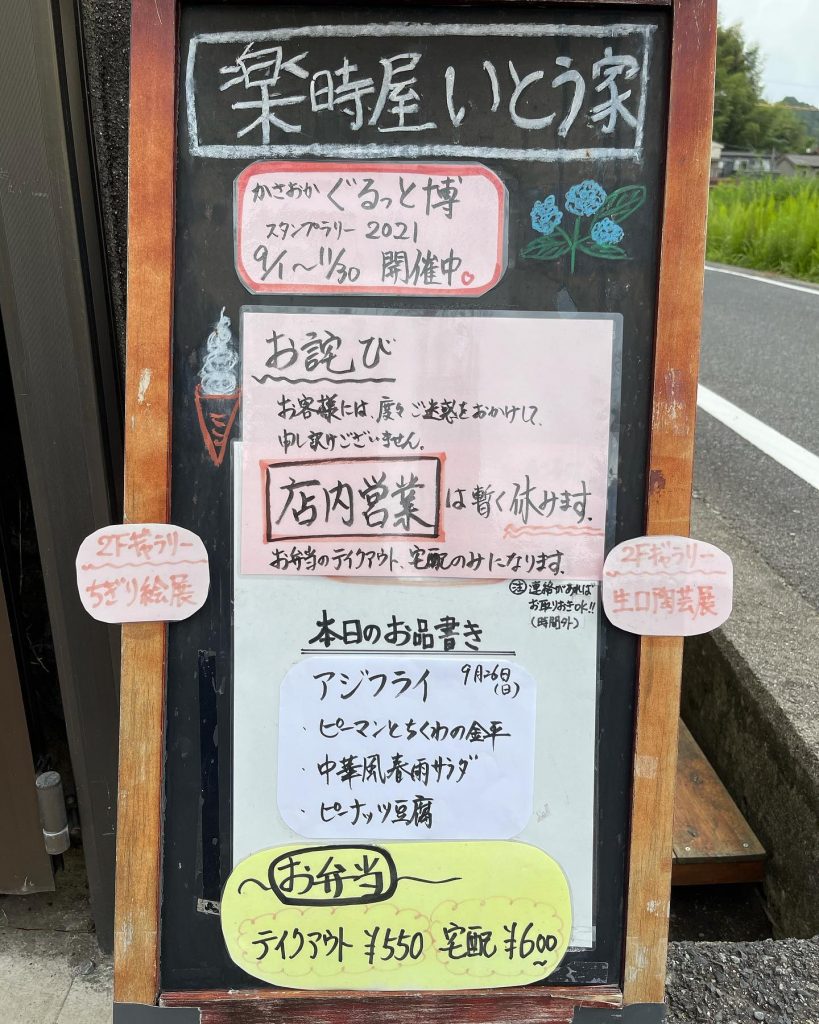 楽時屋いとう家
かさおか ぐるっと博
スタンプラリー 2021
9/1〜11/30 開催中
お詫び
お客様には、度々ご迷惑をおかけして、
申し訳ございません。
店内営業は暫く休みます。
お弁当のテイクアウト、宅配のみになります。
2Fギャラリー
ちぎり絵展
2Fギャラリー
生口陶芸展
㊟連絡があれば
お取りおきOK!!
(時間外)
本日のお品書き
アジフライ 9月26日
(日)
・ピーマンとちくわの金平
・中華風春雨サラダ
・ピーナッツ豆腐
〜お弁当〜
テイクアウト ¥550 宅配 ¥600